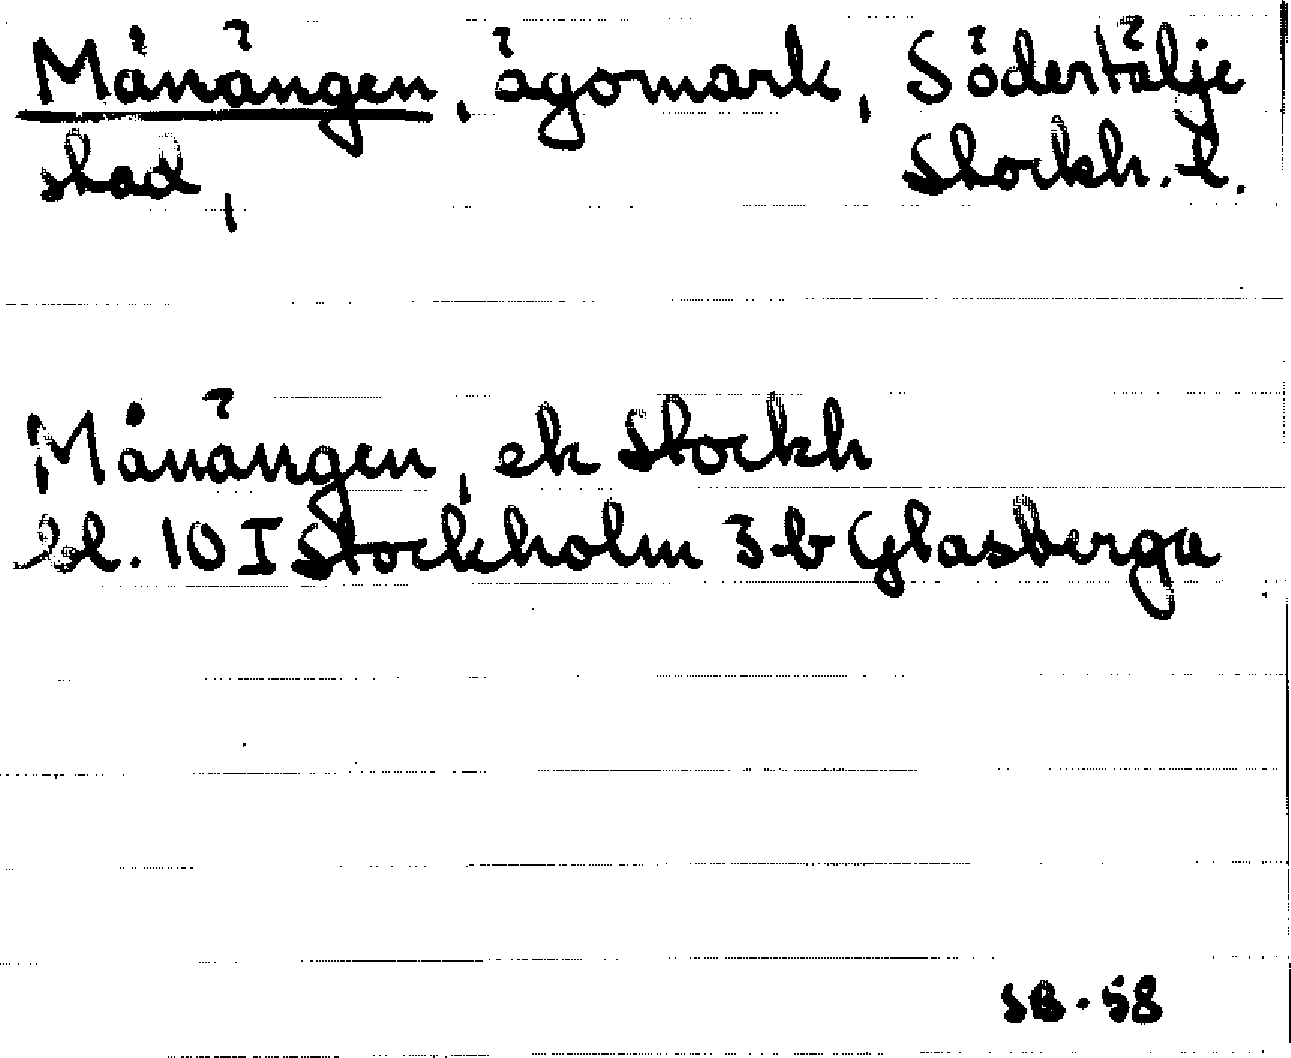 Månängen, ägomark, Södertälje
stad, Stockh. l.
Månängen, ek Stockh
bl. 10 I Stockholm 3 b Glasberga
SB-58